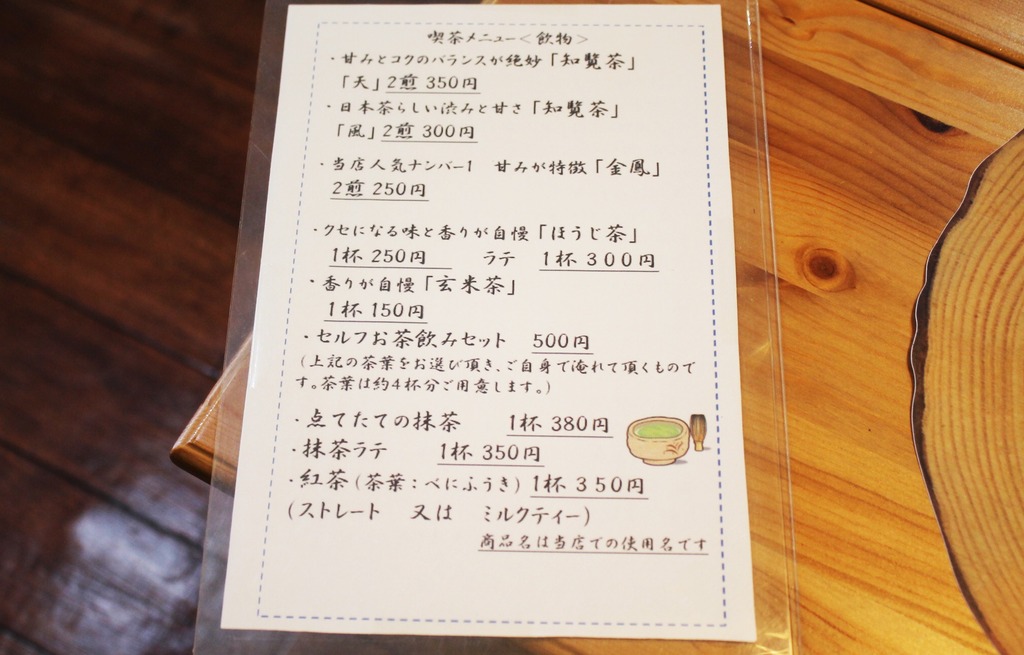 喫茶メニュー<飲物>
・甘みとコクのバランスが絶妙「知覧茶」
「天」2煎 350円
・日本茶らしい渋みと甘さ「知覧茶」
「風」2煎 300円
・当店人気ナンバー1 甘みが特徴「金鳳」
2煎 250円
・クセになる味と香りが自慢「ほうじ茶」
1杯 250円 ラテ 1杯 300円
・香りが自慢「玄米茶」
1杯 150円
・セルフお茶飲みセット 500円
(上記の茶葉をお選び頂き、ご自身で淹れて頂くもので
す。茶葉は約4杯分ご用意します。)
・点てたての抹茶 1杯 380円
・抹茶ラテ 1杯 350円
・紅茶(茶葉:べにふうき) 1杯 350円
(ストレート 又は ミルクティー)
商品名は当店での使用名です